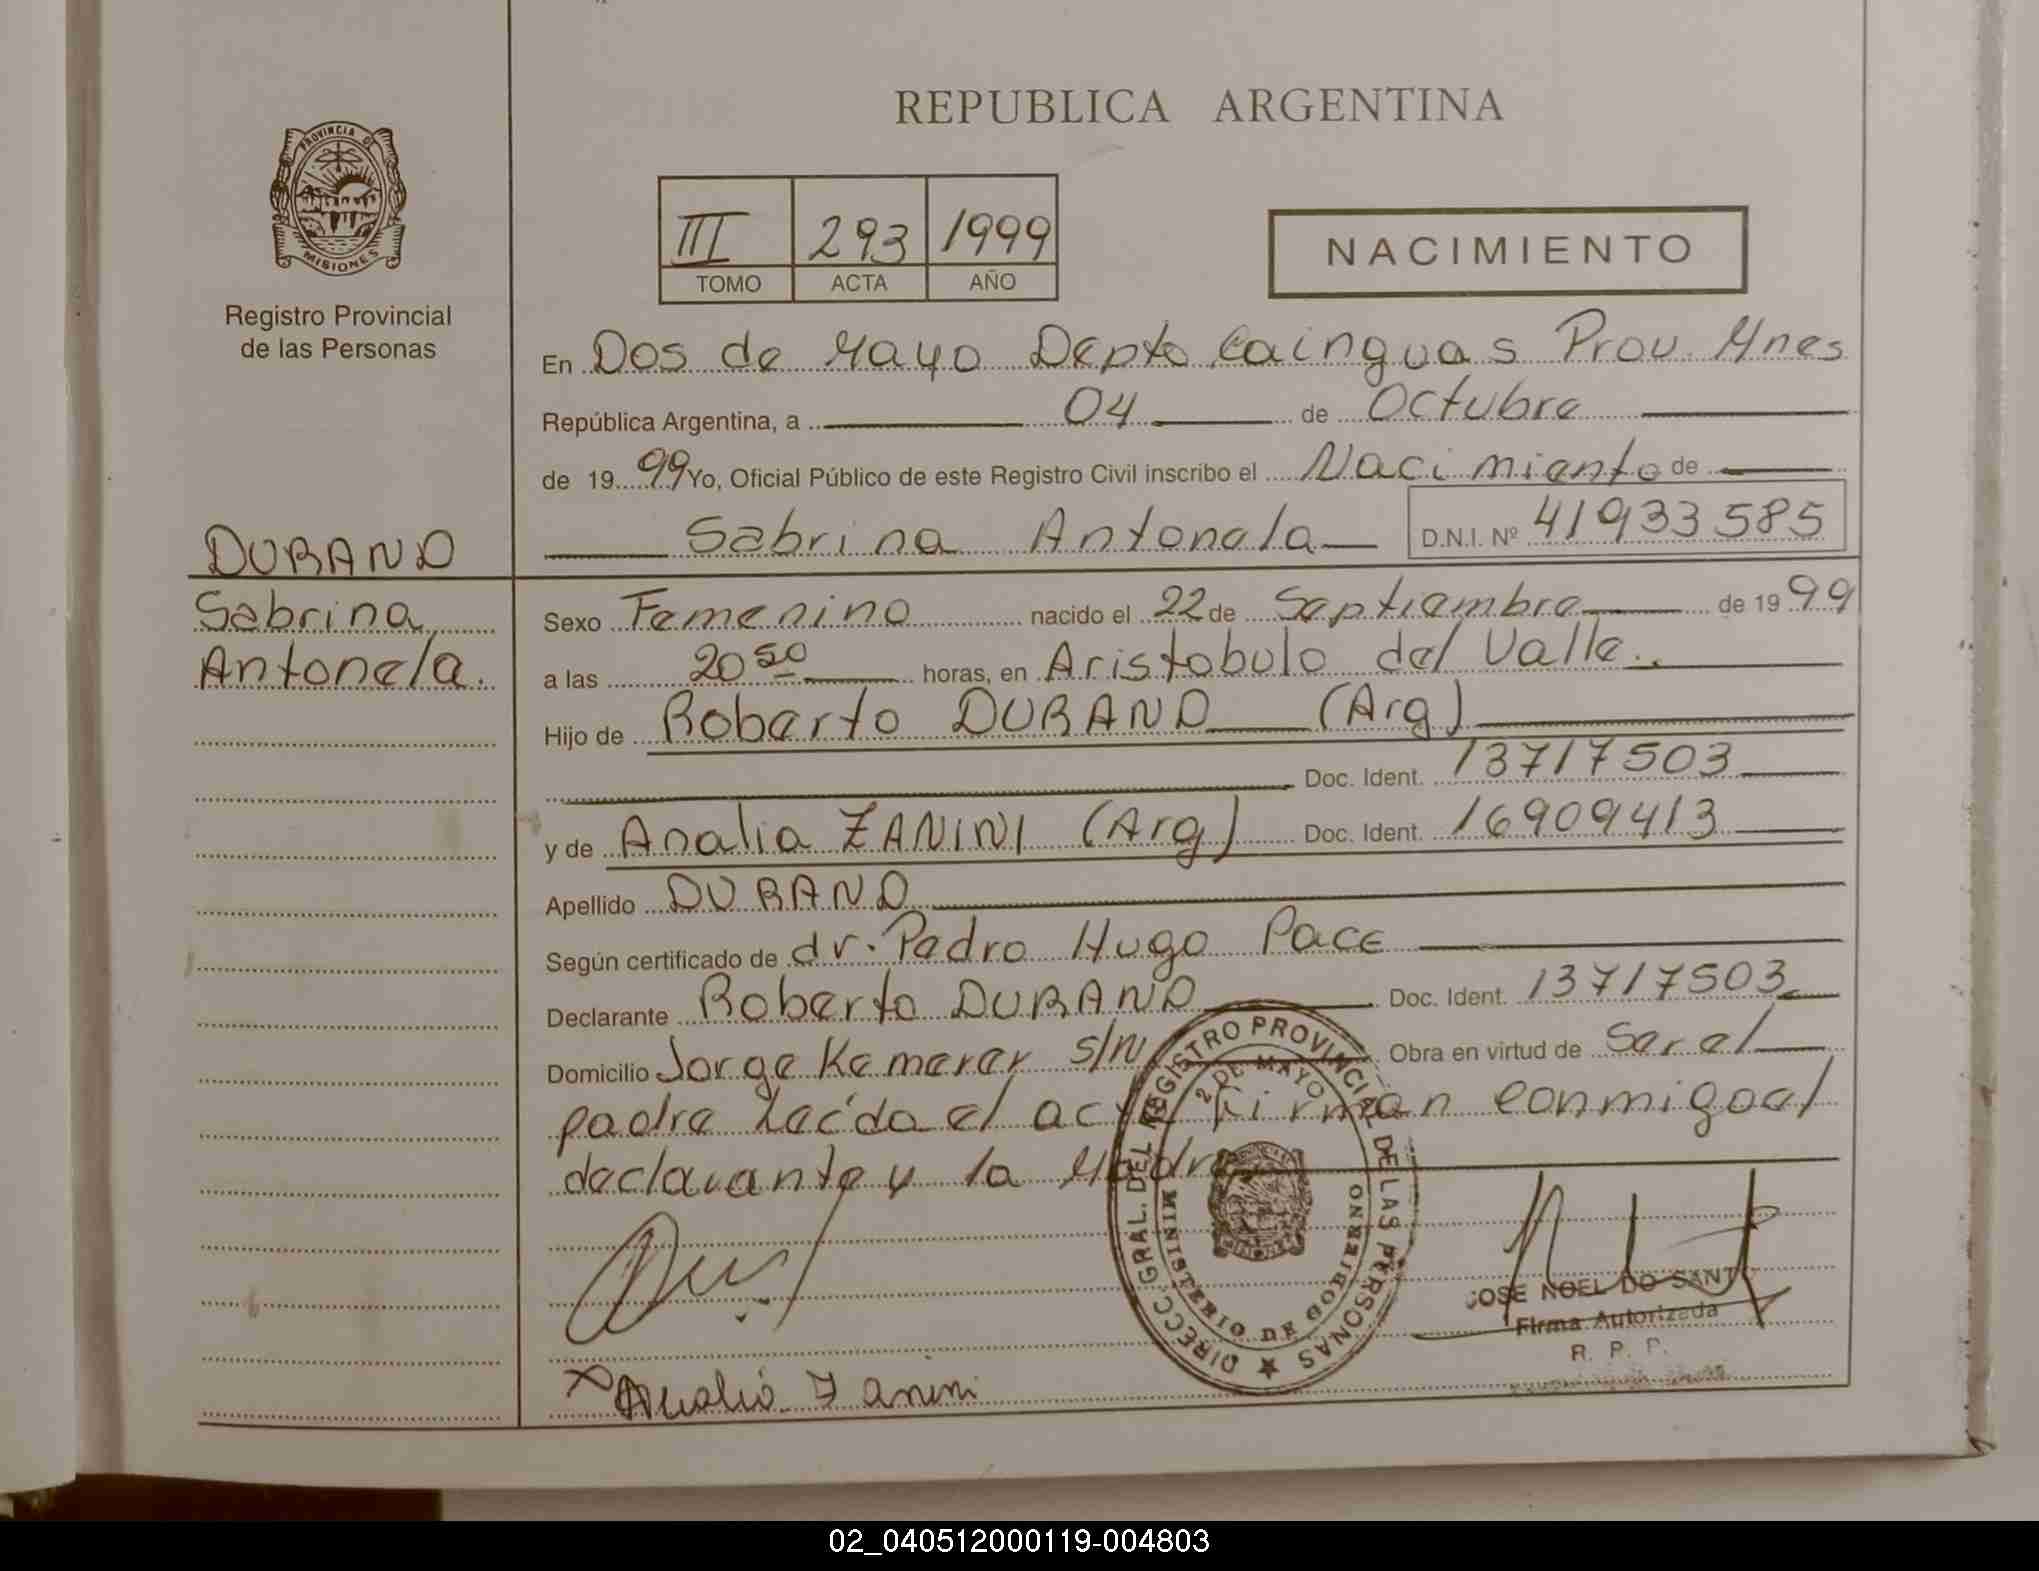 REPUBLICA ARGENTINA
PROVINCIA DE
MISIONES
Registro Provincial
de las Personas
III 293 1999
TOMO ACTA AÑO
NACIMIENTO
En Dos de Mayo Depto Cainguas Prov. Mnes
República Argentina, a 04 de Octubre
de 19 99 Yo, Oficial Público de este Registro Civil inscribo el Nacimiento de
Sabrina Antonela D.N.I. Nº 41933585
DURAND
Sabrina
Antonela.
Sexo Femenino nacido el 22 de Septiembre de 19 99
a las 20 50 horas, en Aristobulo del Valle.
Hijo de Roberto DURAND (Arg)
Doc. Ident. 13717503
y de Analia ZANINI (Arg) Doc. Ident. 16909413
Apellido DURAND
Según certificado de dr. Pedro Hugo Pace
Declarante Roberto DURAND Doc. Ident. 13717503
Domicilio Jorge Kemerer s/n Obra en virtud de Ser el
padre Leída el acta firman conmigo el
declarante y la Madre
DIRECC. GRAL. DEL REGISTRO PROVINCIAL DE LAS PERSONAS
2 DE MAYO
MINISTERIO DE GOBIERNO
MISIONES
JOSE NOEL DO SANT
Firma Autorizada
R. P. P.
Analia Zanini
02_040512000119-004803